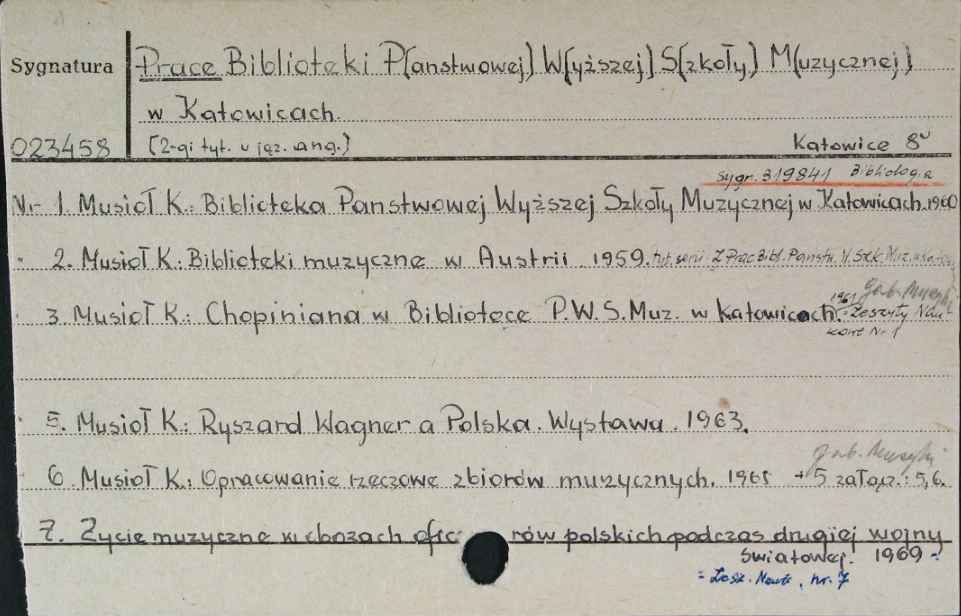 Sygnatura Prace Biblioteki P(anstwowej) W(yższej) S(zkoły) M(uzycznej)
w Katowicach.
023458 (2-gi tyt. w jęz. ang.) Katowice 8°
sygn. 319841 Bibliolog.
Nr 1. Musioł K.: Biblioteka Panstwowej Wyższej Szkoły Muzycznej w Katowicach. 1960
2. Musioł K.: Biblioteki muzyczne w Austrii. 1959. tyt. serii: Z Prac Bibl. Państw. W. Szk. Muz.
gab. Muzyki
3. Musioł K.: Chopiniana w Bibliotece P.W.S.Muz. w Katowicach. 1961 = Zeszyty Nau-
kowe Nr 1
5. Musioł K.: Ryszard Wagner a Polska. Wystawa. 1963.
gab. Muzyki
6. Musioł K.: Opracowanie rzeczowe zbiorów muzycznych. 1965 + 5 załącz.: 5,6.
7. Życie muzyczne w obozach ofic rów polskich podczas drugiej wojny
światowej. 1969 =
= Zesz. Nauk. nr. 7